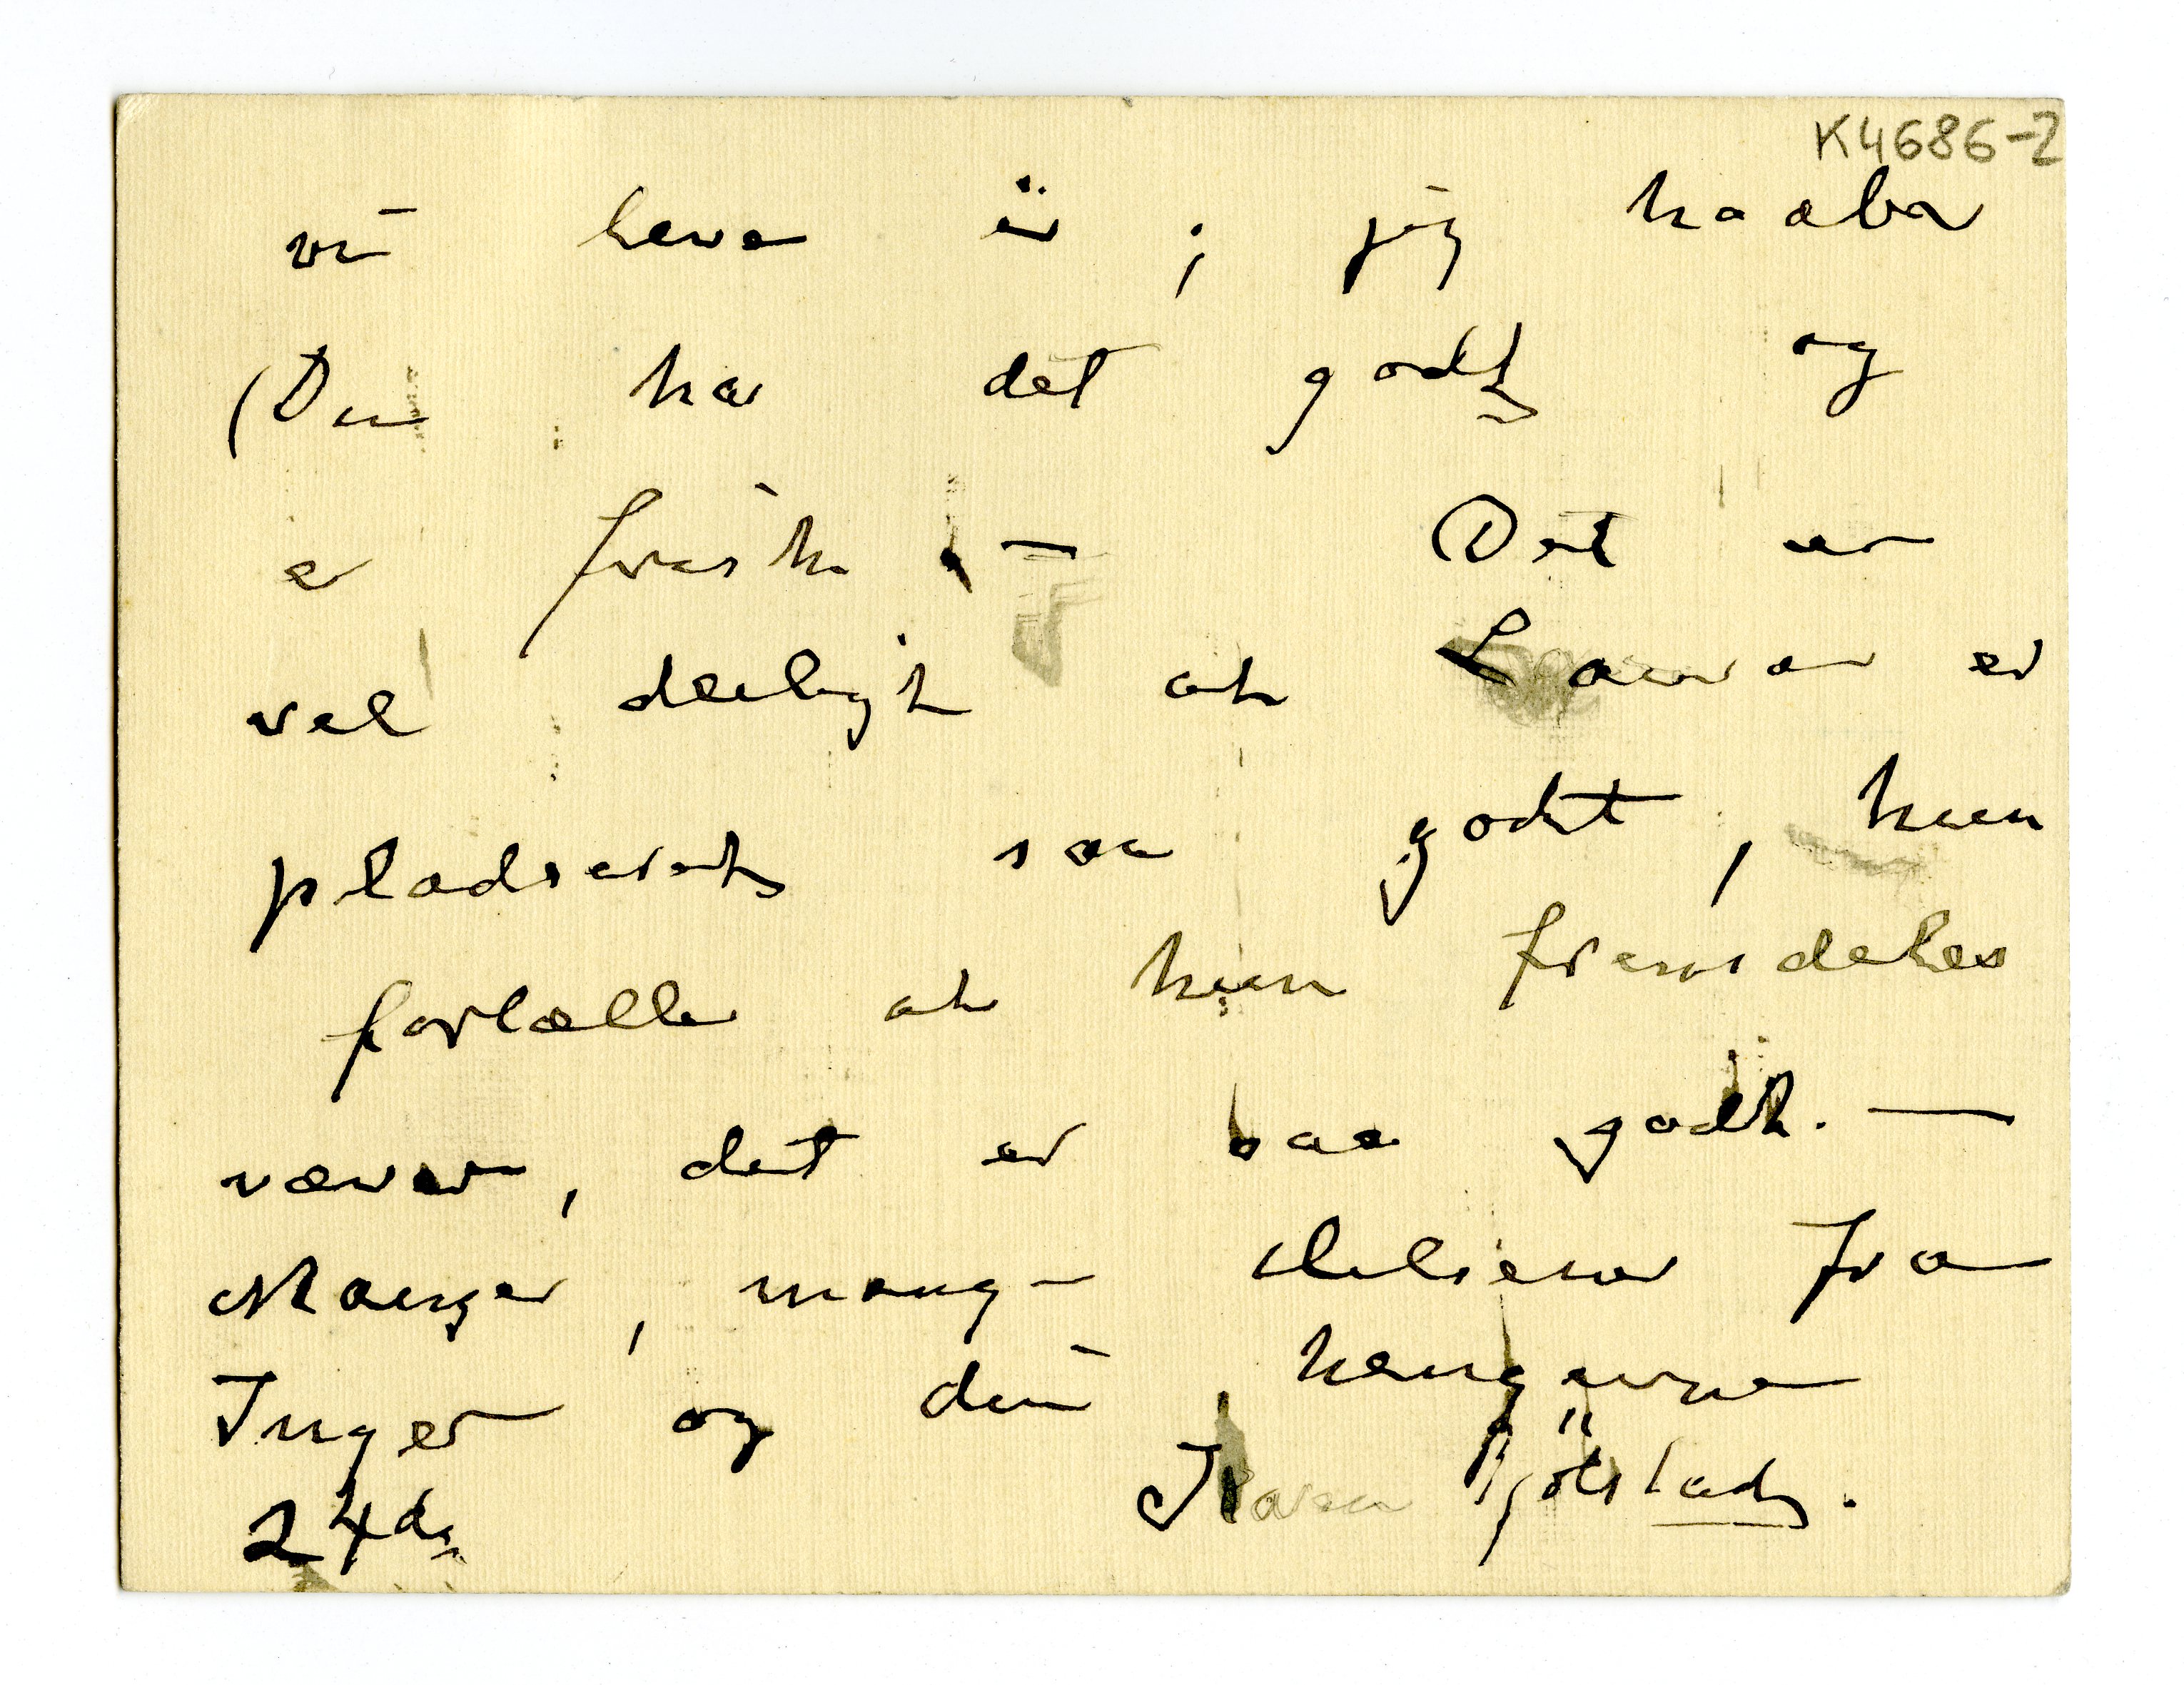 K4686-2
vi leve i; jeg haaber
Du har det godt og
er frisk. – Det er
vel deiligt at Laura er
pladseret saa godt, hun
fortæller at hun fremdeles
væver, det er saa godt. —
Mange, mange hilsener fra
Inger og din hengivne
Karen Bjølstad.
24de